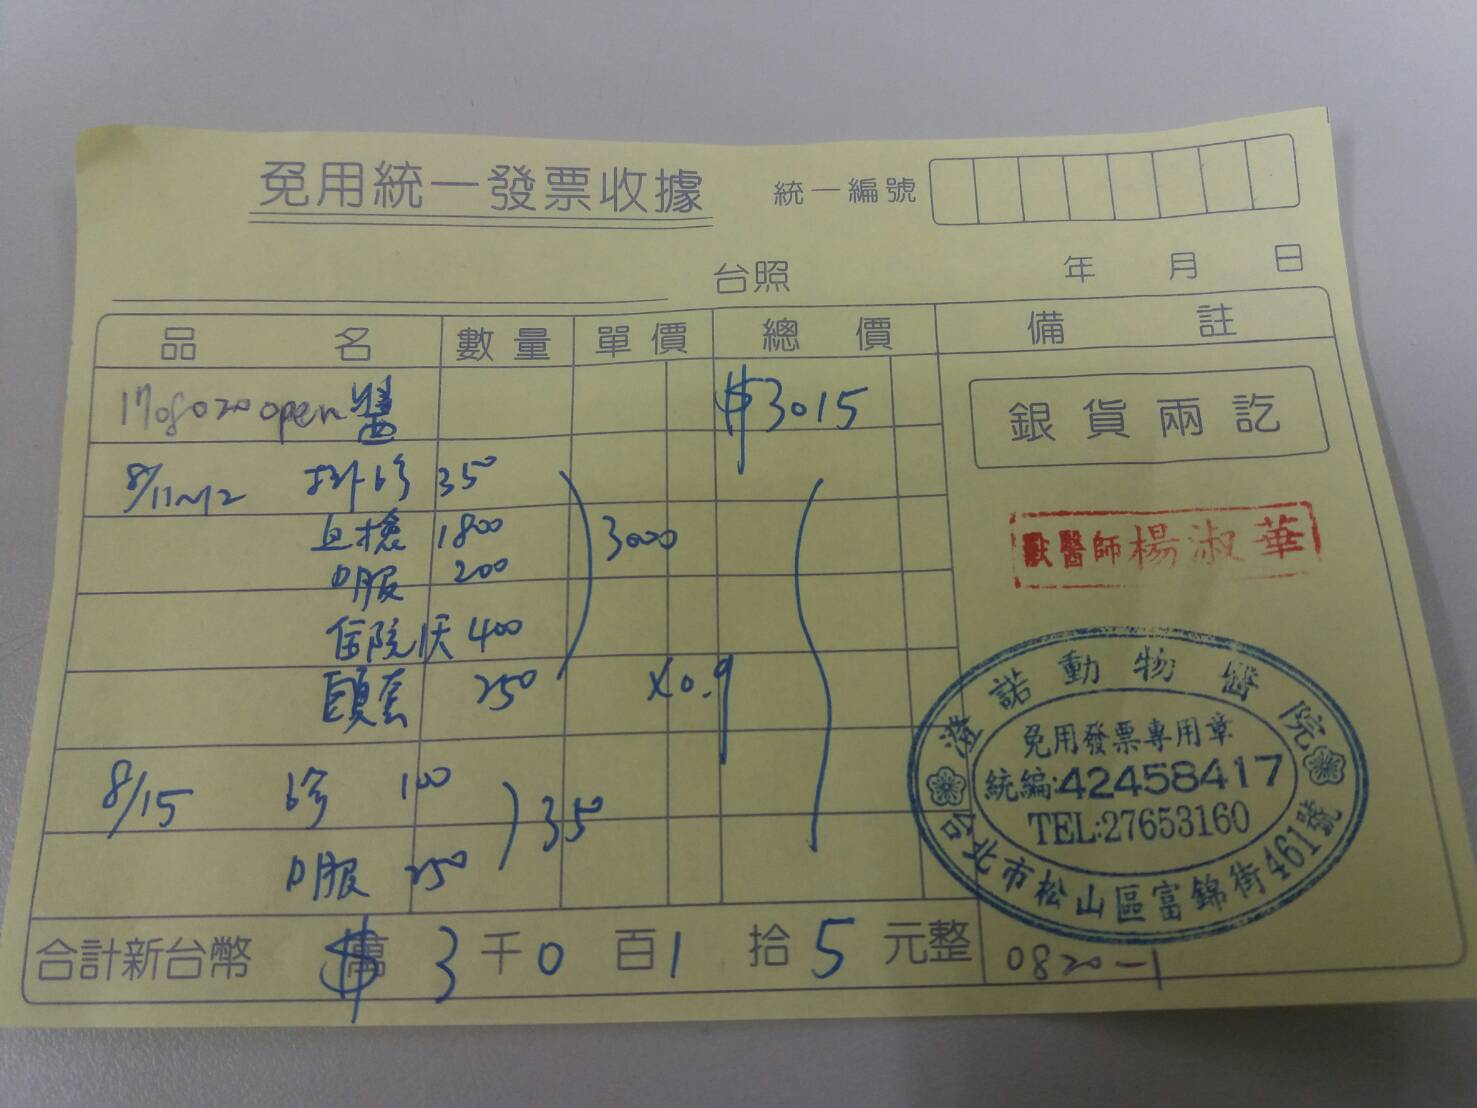 免用統一發票收據
統一編號
台照
年 月 日
品名 數量 單價 總價 備註
170820 open $3015
銀貨兩訖
8/11~12 掛診 350
血檢 1800 3000
口服 200
住院1天 400
頭套 250 ×0.9
8/15 診 100 350
口服 250
獸醫師楊淑華
澄諾動物醫院
免用發票專用章
統編:42458417
TEL:27653160
台北市松山區富錦街461號
合計新台幣 $ 萬 3 千 0 百 1 拾 5 元整
0820-1